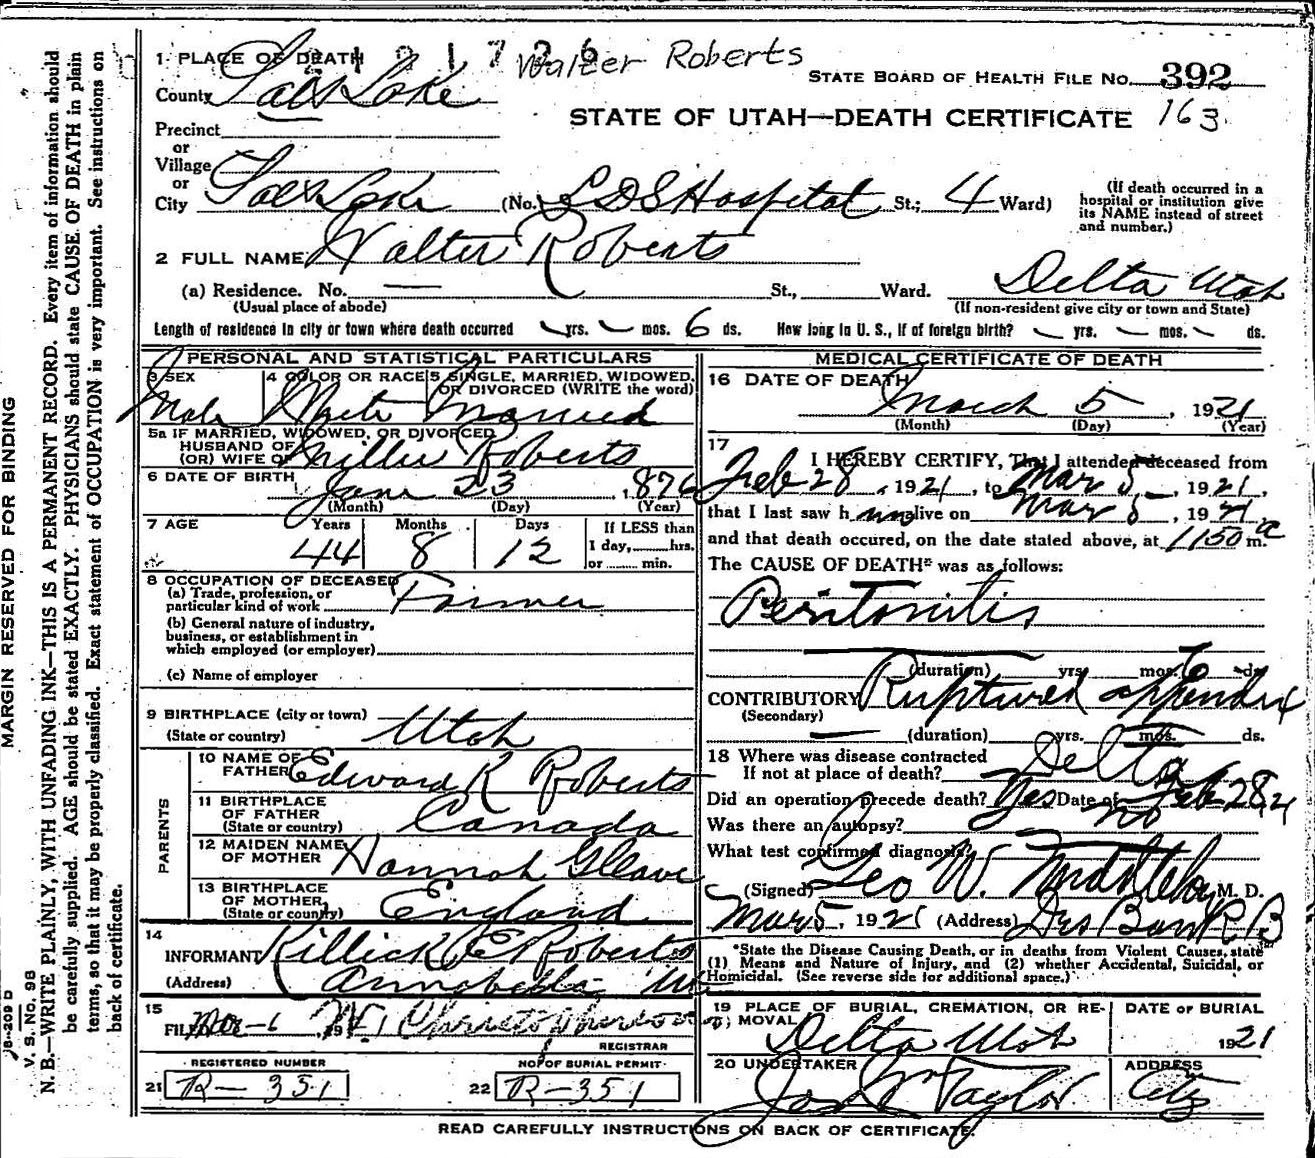 Walter Roberts
1 PLACE OF DEATH
County Salt Lake
STATE BOARD OF HEALTH FILE No. 392
STATE OF UTAH—DEATH CERTIFICATE 163
Precinct
or
Village
or
City Salt Lake (No. L D S Hospital St.; 4 Ward)
(If death occurred in a
hospital or institution give
its NAME instead of street
and number.)
2 FULL NAME Walter Roberts
(a) Residence. No. — St., Ward. Delta Utah
(Usual place of abode) (If non-resident give city or town and State)
Length of residence in city or town where death occurred yrs. mos. 6 ds. How long in U. S., if of foreign birth? yrs. mos. ds.
PERSONAL AND STATISTICAL PARTICULARS
3 SEX 4 COLOR OR RACE 5 SINGLE, MARRIED, WIDOWED,
OR DIVORCED (WRITE the word)
Male White Married
5a IF MARRIED, WIDOWED, OR DIVORCED
HUSBAND OF
(OR) WIFE OF Millie Roberts
6 DATE OF BIRTH 23, 1876
(Month) (Day) (Year)
7 AGE Years Months Days If LESS than
44 8 12 1 day,......hrs.
or ...... min.
8 OCCUPATION OF DECEASED
(a) Trade, profession, or
particular kind of work Farmer
(b) General nature of industry,
business, or establishment in
which employed (or employer)
(c) Name of employer
9 BIRTHPLACE (city or town)
(State or country) Utah
PARENTS
10 NAME OF
FATHER Edward K Roberts
11 BIRTHPLACE
OF FATHER
(State or country) Canada
12 MAIDEN NAME
OF MOTHER Hannah Gleave
13 BIRTHPLACE
OF MOTHER
(State or country) England
14
INFORMANT Killick E Roberts
(Address) Annabella Ut
15
FILED Mar-6, 19 W. Christopherson
REGISTRAR
REGISTERED NUMBER NO. OF BURIAL PERMIT
21 R-351 22 R-351
MEDICAL CERTIFICATE OF DEATH
16 DATE OF DEATH
March 5, 1921
(Month) (Day) (Year)
17
I HEREBY CERTIFY, That I attended deceased from
Feb 28, 1921, to Mar 5, 1921,
that I last saw h im alive on Mar 5, 1921,
and that death occured, on the date stated above, at 1150 a m.
The CAUSE OF DEATH* was as follows:
Peritonitis
(duration) yrs. mos. 6 ds.
CONTRIBUTORY Ruptured appendix
(Secondary)
(duration) yrs. mos. ds.
18 Where was disease contracted
If not at place of death? Delta
Did an operation precede death? Yes Date of Feb 28, 21
Was there an autopsy? no
What test confirmed diagnosis
(Signed) Geo W. Middleton, M. D.
Mar 5, 1921 (Address)
*State the Disease Causing Death, or in deaths from Violent Causes, state
(1) Means and Nature of Injury, and (2) whether Accidental, Suicidal, or
Homicidal. (See reverse side for additional space.)
19 PLACE OF BURIAL, CREMATION, OR RE-
MOVAL Delta Utah
DATE OF BURIAL
1921
20 UNDERTAKER Jos Wm Taylor
ADDRESS
City
READ CAREFULLY INSTRUCTIONS ON BACK OF CERTIFICATE.
MARGIN RESERVED FOR BINDING
V. S. No. 98
N. B.—WRITE PLAINLY, WITH UNFADING INK—THIS IS A PERMANENT RECORD. Every item of information should
be carefully supplied. AGE should be stated EXACTLY. PHYSICIANS should state CAUSE OF DEATH in plain
terms, so that it may be properly classified. Exact statement of OCCUPATION is very important. See instructions on
back of certificate.